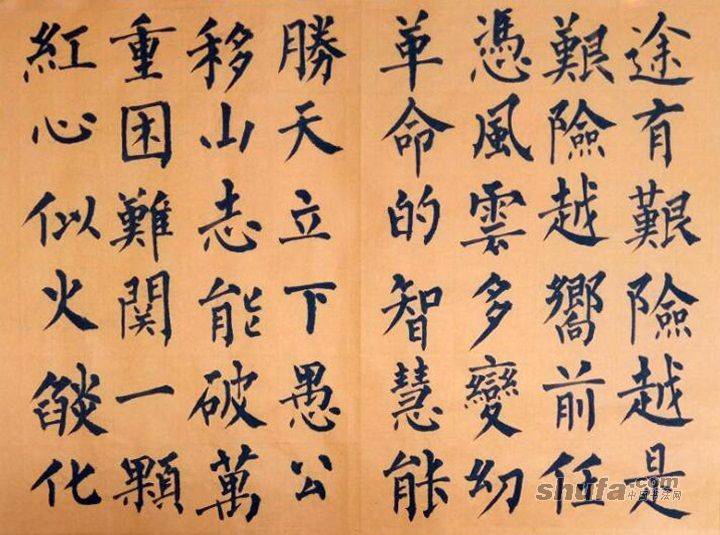 途有艱險越是
艱險越嚮前任
憑風雲多變幻
革命的智慧能
勝天立下愚公
移山志能破萬
重困難関一顆
紅心似火燄化
shufa.com
中国书法网